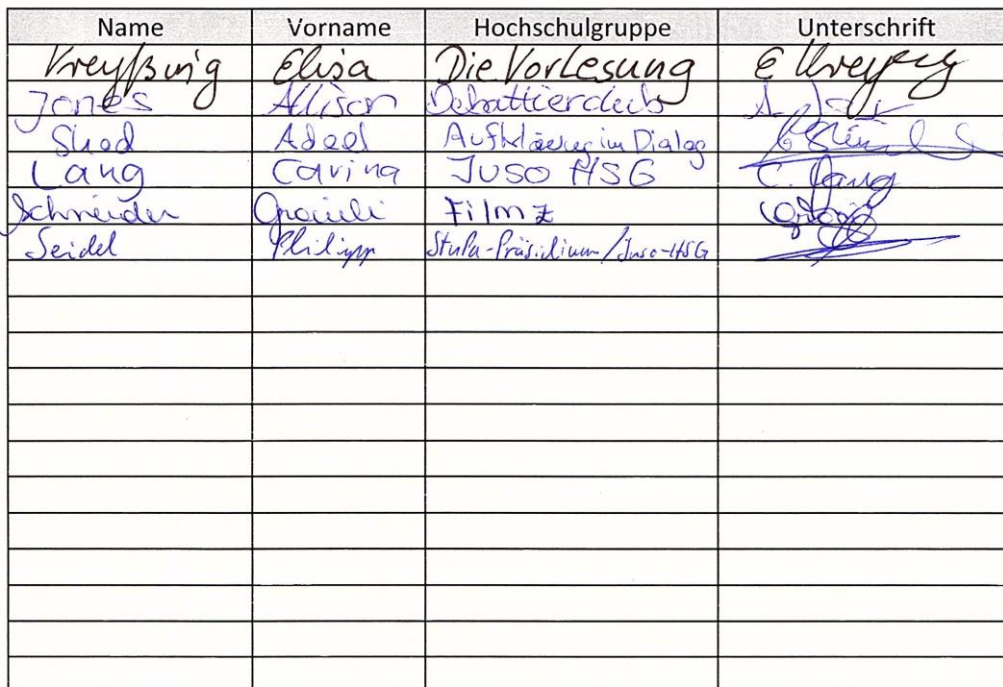 Name Vorname Hochschulgruppe Unterschrift
Elisa Die Vorlesung
Jones Allison Debattierclub
Shad Adeel Aufklärung im Dialog
Lang Carina JUSO HSG C. Lang
Schneider Filmz
Seidel Philipp StuPa-Präsidium/Juso-HSG